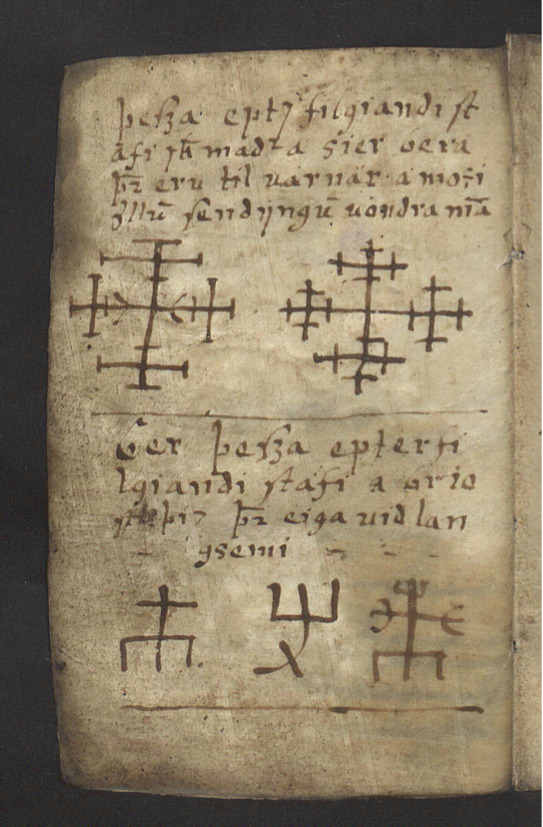 þessa epter filgiandi st
afi sk madr a sier bera
þr eru til varnar a moti
ollū sendijngū vondra mā
Ber þessa epter fi
lgiandi stafi a brio
þr eiga vid lan
gsemi